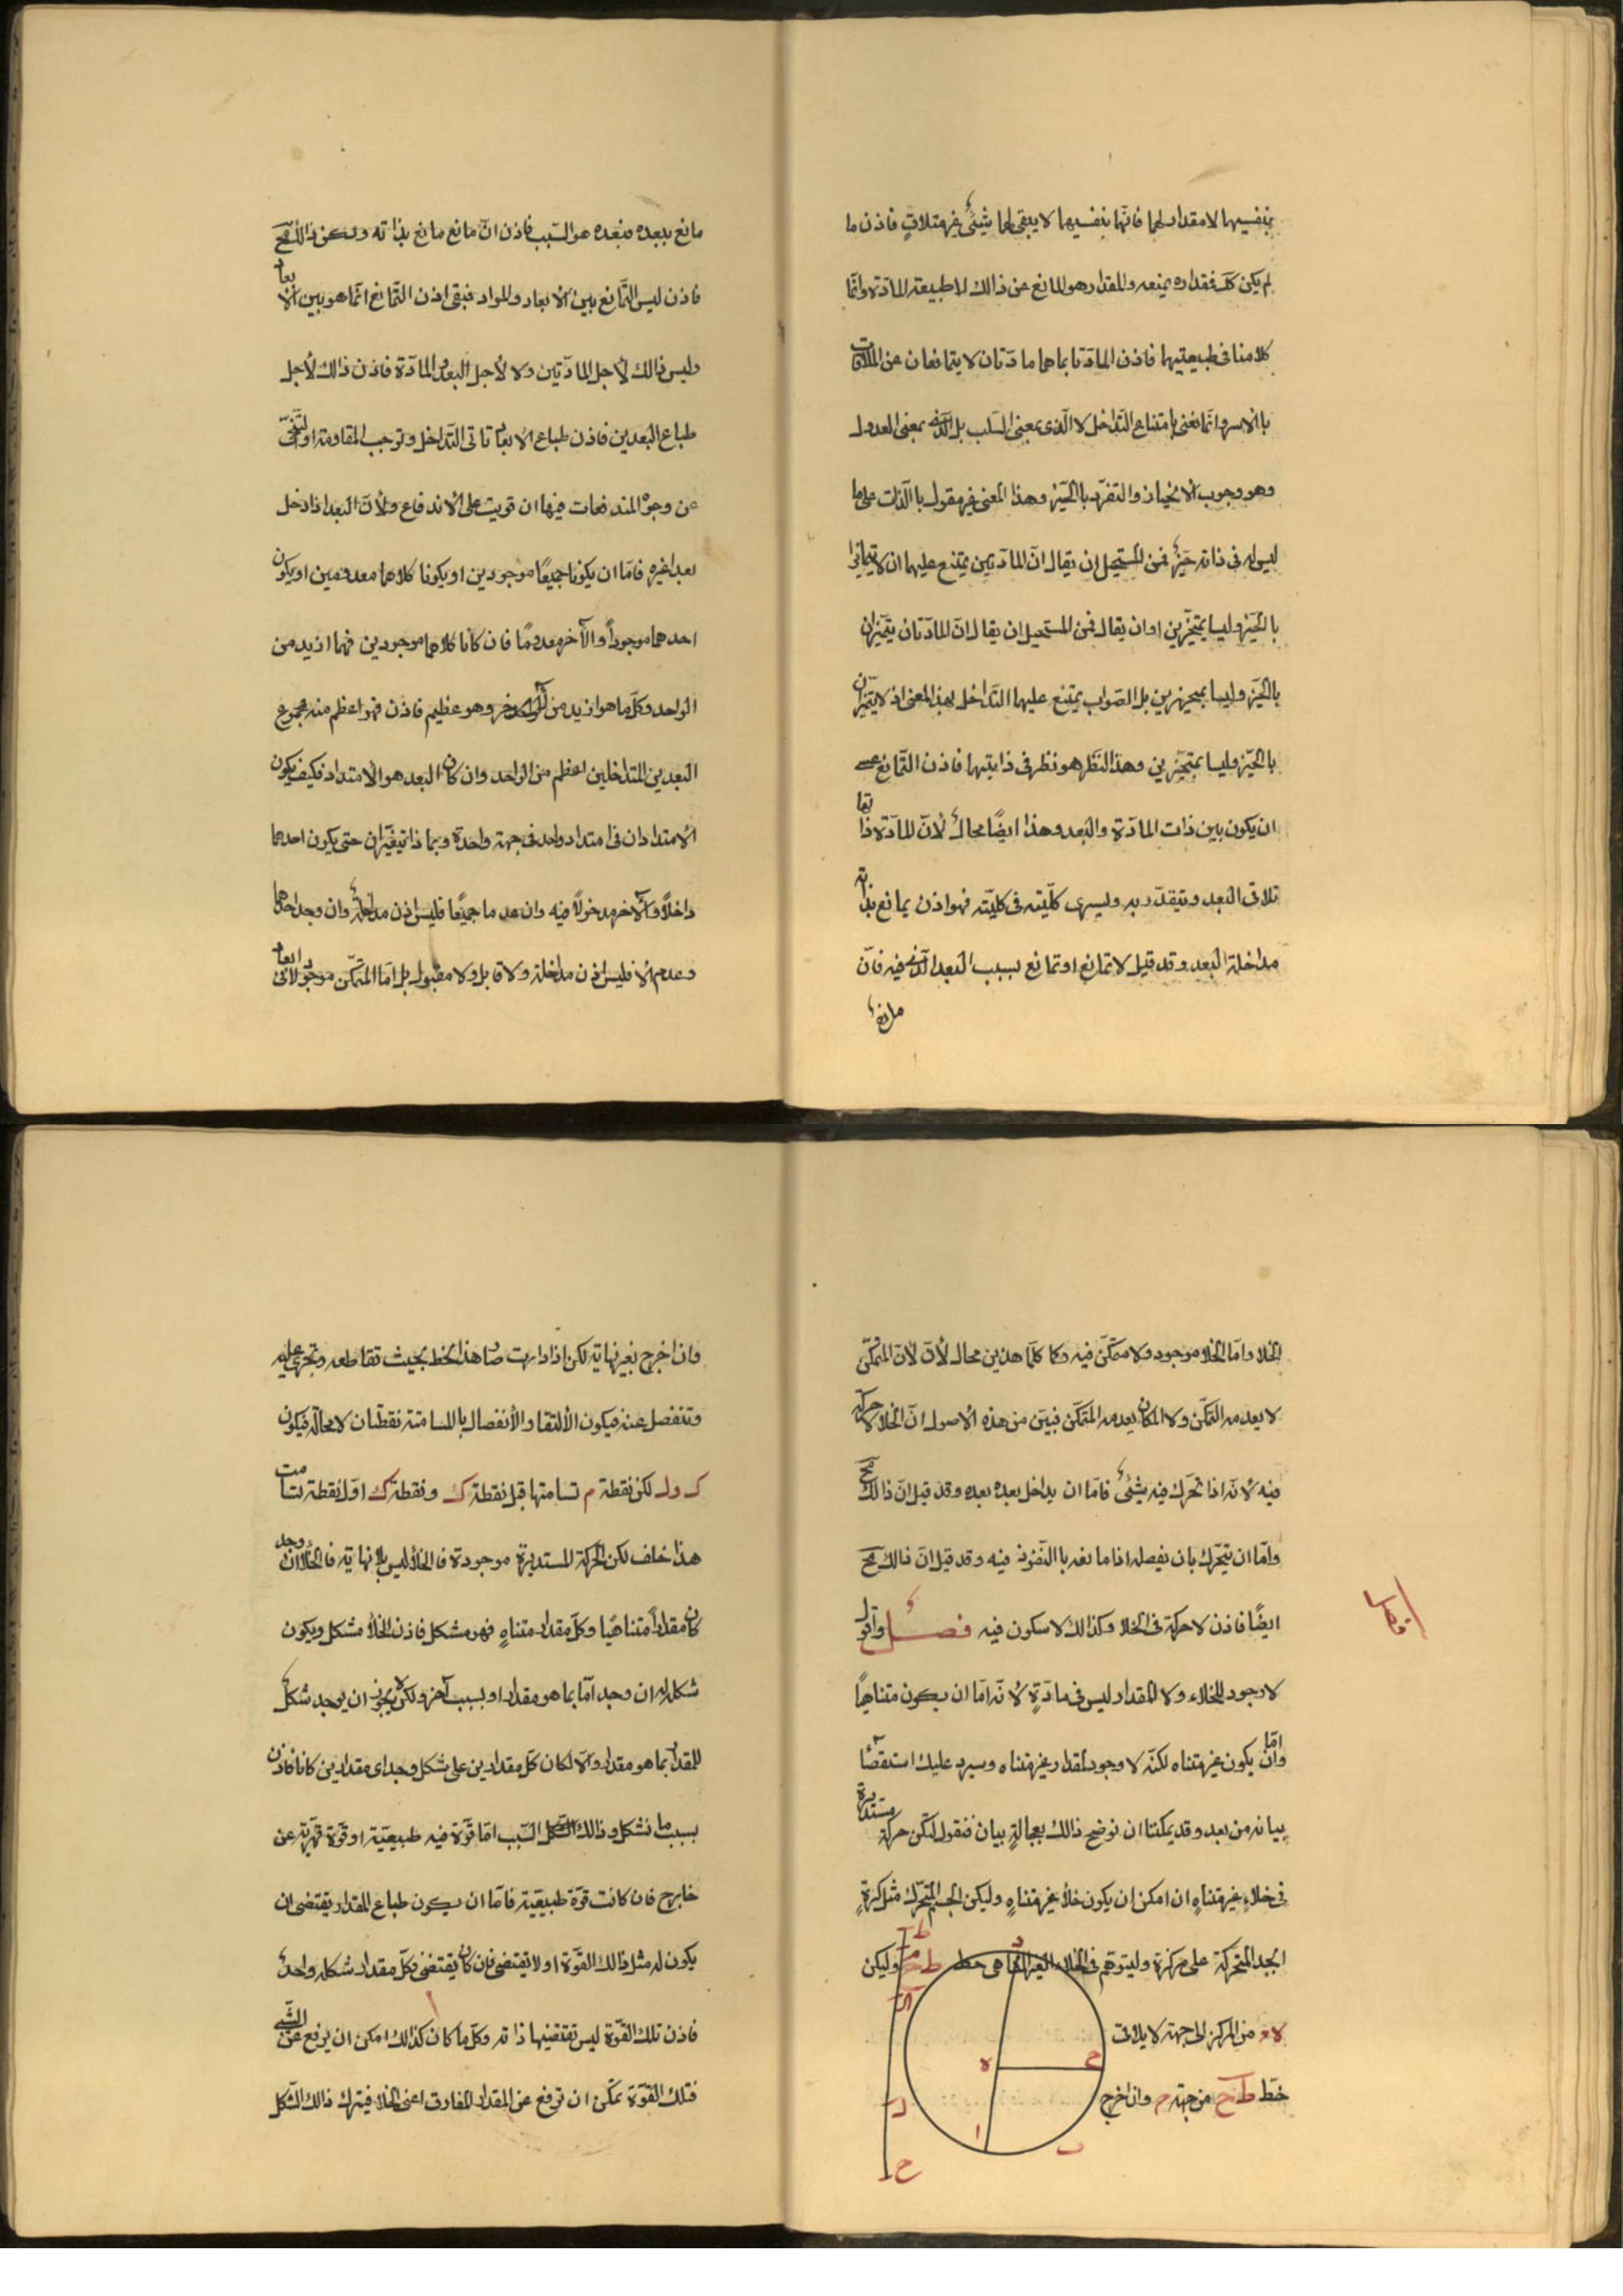 بنفسيهما لا مقدار لهما فانهما بنفسيهما لا يبقى لهما شيئ غير متلاق فاذن ما
لم يكن كك فمقداره يمنعه والمقدار هو المانع عن ذالك لا طبيعة المادة وانما
كلامنا فى طبيعتيهما فاذن المادتا بما هما مادتان لا يتمانعان عن الملاقات
بالاسر وانما نعنى بامتناع التداخل لا الذى بمعنى السلب بل الذى بمعنى العدول
وهو وجوب الانحياز والتفرد بالحيز وهذا المعنى غير مقول بالذات على ما
ليس له فى ذاته حيز فمن المستحيل ان يقال ان المادتين يمتنع عليهما ان لا يتمايزا
بالحيز وليسا بمتحيزين او ان يقال فمن المستحيل ان يقال ان المادتان يتميزان
بالحيز وليسا بمتحيزين بل الصواب يمتنع عليهما التداخل بهذا المعنى اذ لا يتميزان
بالحيز وليسا بمتحيزين وهذا النظر هو نظر فى ذاتيهما فاذن التمانع عسى
ان يكون بين ذات المادة والبعد وهذا ايضًا محال لان المادة ذاتها
تلاقى البعد وتتقدر به وليسرى كليته فى كليته فهو اذن يمانع بذاته
مداخلة البعد وقد قيل لا تمانع او تمانع لسبب البعد الذى فيه فان
مانع
مانع ببعده فبعده هو السبب فاذن ان مانع مانع بذاته ولكن ذالك مح
فاذن ليس التمانع بين الابعاد والمواد فبقى اذن التمانع انما هو بين الابعاد
وليس ذالك لاجل المادتين ولا لاجل البعد والمادة فاذن ذالك لاجل
طباع البعدين فاذن طباع الابعاد تاتى التداخل وتوجب المقاومة او التنحى
عن وجوه المندفعات فيها ان قويت على الاندفاع ولان البعد اذا دخل
بعدا غيره فاما ان يكونا جميعًا موجودين او يكونا كلاهما معدومين او يكون
احدهما موجوداً والآخر معدومًا فان كانا كلاهما موجودين فهما ازيد من
الواحد وكل ما هو ازيد من الآخر وهو عظيم فاذن فهو اعظم منه فمجموع
البعدين المتداخلين اعظم من الواحد وان كان البعد هو الامتداد فكيف يكون
الامتدادان فى امتداد واحد فى جهة واحدة وبما ذا يتغيران حتى يكون احدهما
داخلاً والآخر مدخولاً فيه وان عدما جميعًا فليس اذن مداخلة وان وجد احدهما
وعدم الا فليس اذن مداخلة ولا قابل ولا مقبول بل اما المتمكن موجود لا فى ابعاد
الخلا واما الخلا موجود ولا متمكن فيه وكلا هذين محال لان لان المتمكن
لا يعدمه التمكن ولا المكان يعدمه المتمكن فبين من هذه الاصول ان الخلا لا حركة
فيه لانه اذا تحرك فيه شيئ فاما ان يداخل بعده بعده وقد قيل ان ذالك مح
واما ان يتحرك بان يفصله اذا مانعه بالنفوذ فيه وقد قيل ان ذالك مح
ايضًا فاذن لا حركة فى الخلا وكذالك لا سكون فيه فصل واقول
فصل
لا وجود للخلاء ولا المقدار ليس فى مادة لانه اما ان يكون متناهياً
واما ان يكون غير متناه لكنه لا وجود لمقدار غير متناه وسيرد عليك استقصاء
بيانه من بعد وقد يمكننا ان نوضح ذالك بعجالة بيان فنقول لتكن حركة مستديرة
فى خلاء غير متناه ان امكن ان يكون خلاء غير متناه وليكن الجسم المتحرك مثل كرة
ابجد المتحركة على مركزه وليتوهم فى الخلاء الغير المتناهى خط ط ح وليكن
من المركز الى جهة لا يلاقى
خط ط ح من جهة م وان اخرج
ط
م
ك
ل
ح
د
ج
ه
ا
ب
وان اخرج بغير نهاية لكن اذا دارت صار هذا الخط بحيث تقاطعه وتجرى عليه
وتنفصل عنه فيكون الالتقا والانفصال بالمسامتة نقطتان لا محالة فيكون
ك ول لكن نقطة م تسامتها قبل نقطة ك ونقطة ك اول نقطة تسامت
هذا خلف لكن الحركة المستديرة موجودة فالخلا ليس بلا نهاية فالخلا ان وجد
كان مقداراً متناهيًا وكل مقدار متناه فهو مشكل فاذن الخلا مشكل ويكون
شكله ان وجد اما بما هو مقدار او بسبب آخر ولكن لا يجوز ان يوجد شكل
للمقدار بما هو مقدار والا لكان كل مقدارين على شكل وجد اى مقدارين كانا فاذن
بسبب ما تشكل وذالك السبب اما قوة فيه طبيعية او قوة قهرية عن
خارج فان كانت قوة طبيعية فاما ان يكون طباع المقدار يقتضى ان
يكون له مثل ذالك القوة او لا تقتضى فان كان يقتضى فكل مقدار شكله واحد
فاذن تلك القوة ليس تقتضيها ذاته وكل ما كان كذالك امكن ان يرفع عن الشئ
فتلك القوة يمكن ان ترفع عن المقدار المفارق اعنى الخلا فيترك ذالك الشكل